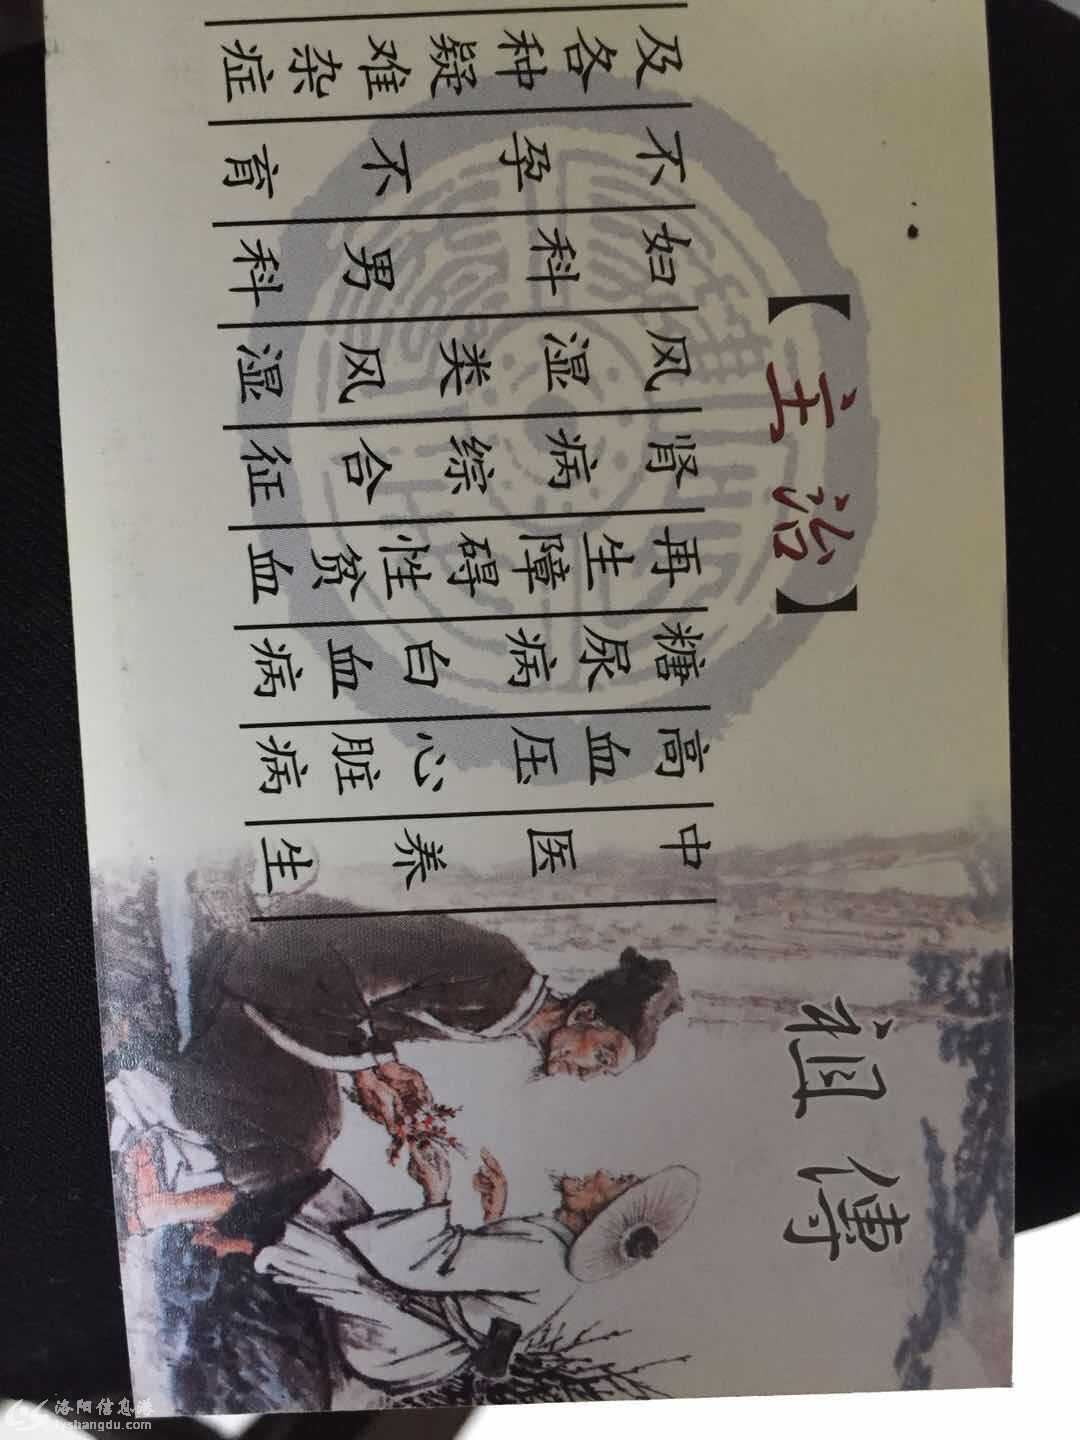 【主治】
祖傳
中医养生
高血压心脏病
糖尿病白血病
再生障碍性贫血
肾病综合征
风湿类风湿
妇科男科
不孕不育
及各种疑难杂症
洛阳信息港
lyshangdu.com